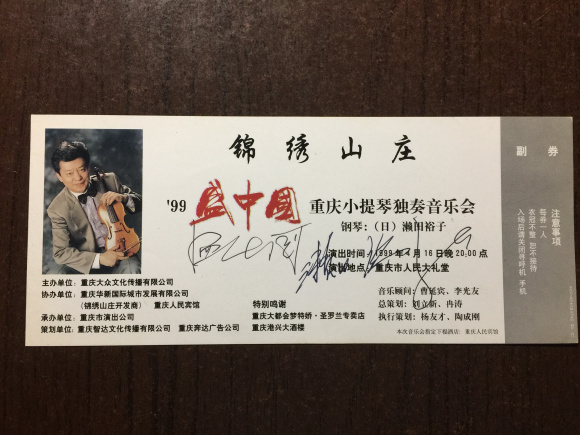 锦绣山庄
'99 盛中国 重庆小提琴独奏音乐会
钢琴:(日)濑田裕子
演出时间:1999年 月16日晚20:00点
演出地点:重庆市人民大礼堂
主办单位:重庆大众文化传播有限公司
协办单位:重庆华新国际城市发展有限公司
(锦绣山庄开发商) 重庆人民宾馆
承办单位:重庆市演出公司
策划单位:重庆智达文化传播有限公司 重庆奔达广告公司
特别鸣谢
重庆大都会梦特娇·圣罗兰专卖店
重庆港兴大酒楼
音乐顾问:曹延宾、李光友
总策划:刘立新、冉涛
执行策划:杨友才、陶成刚
本次音乐会指定下榻酒店:重庆人民宾馆
副券
注意事项
每券一人
衣冠不整 恕不接待
入场后请关闭寻呼机 手机